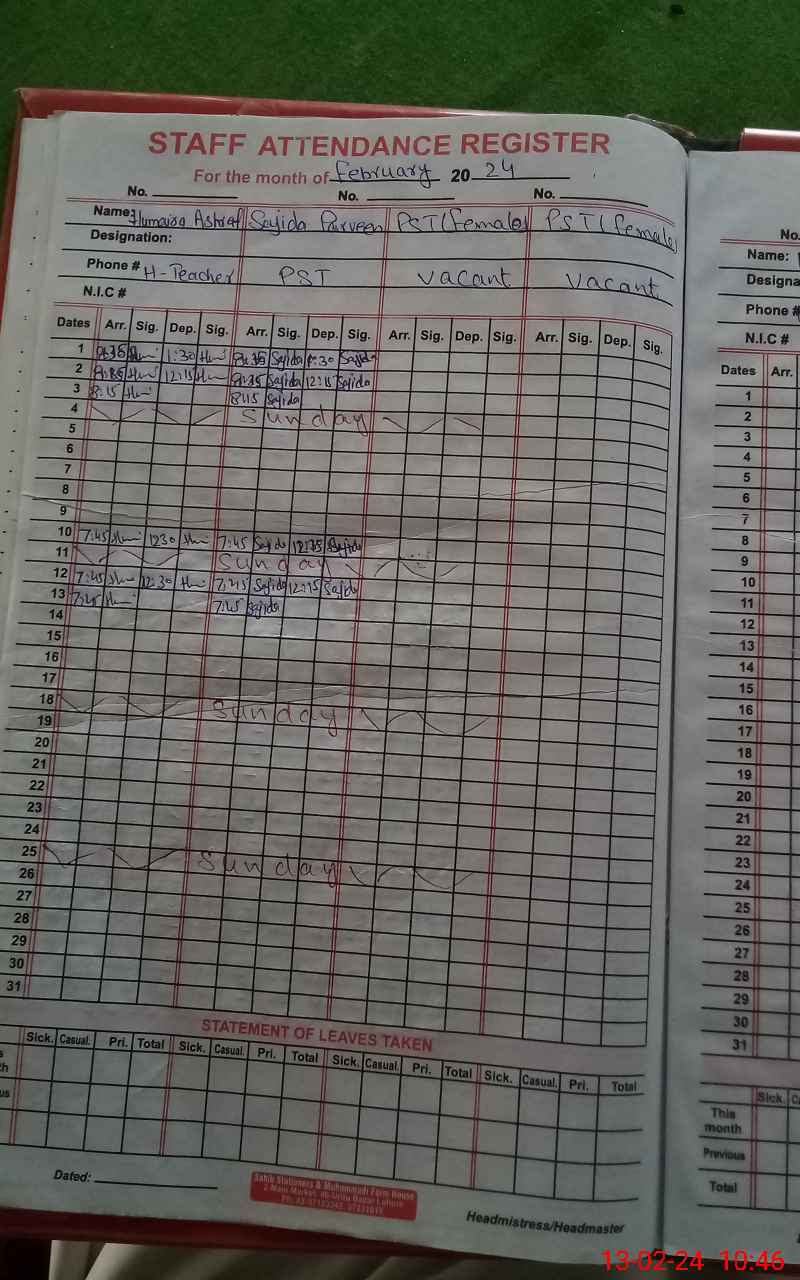 STAFF ATTENDANCE REGISTER
For the month of February 20 24
No. No. No.
Name: Humaira Ashraf Sajida Parveen PST (female) PST (female)
Designation:
Phone # H-Teacher PST vacant vacant
N.I.C #
Dates Arr. Sig. Dep. Sig. Arr. Sig. Dep. Sig. Arr. Sig. Dep. Sig. Arr. Sig. Dep. Sig.
1 8:35 1:30 8:35 Sajida 1:30 Sajida
2 8:35 12:15 8:35 Sajida 12:15 Sajida
3 8:15 8:15 Sajida
4 Sunday
5
6
7
8
9
10 7:45 12:30 7:45 Sajida Sajida
11 Sunday
12 7:45 12:30 7:45 Sajida 12:15 Sajida
13 7:45 7:45 Sajida
14
15
16
17
18 Sunday
19
20
21
22
23
24
25 Sunday
26
27
28
29
30
31
STATEMENT OF LEAVES TAKEN
Sick. Casual. Pri. Total Sick. Casual. Pri. Total Sick. Casual. Pri. Total Sick. Casual. Pri. Total
Dated:
Sahib Stationers & Muhammadi Form House
2-Main Market, Urdu Bazar Lahore
Headmistress/Headmaster
No.
Name:
Designa
Phone #
N.I.C #
Dates Arr.
1
2
3
4
5
6
7
8
9
10
11
12
13
14
15
16
17
18
19
20
21
22
23
24
25
26
27
28
29
30
31
Sick.
This
month
Previous
Total
13-02-24 10:46